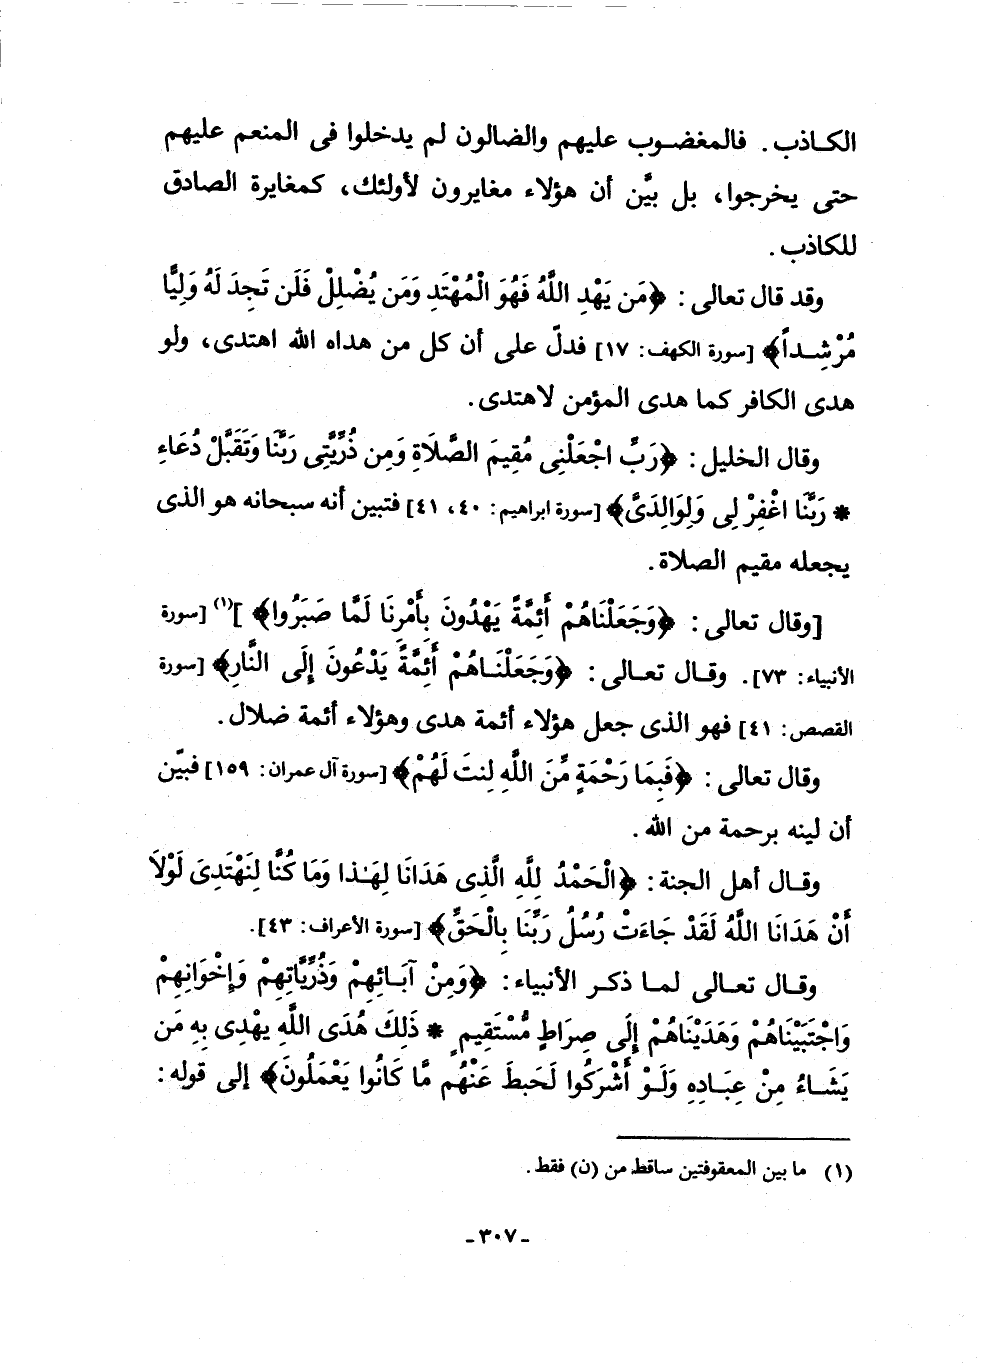 الكـاذب. فالمغضـوب عليهم والضالون لم يدخلوا فى المنعم عليهم
حتى يخرجوا، بل بيَّن أن هؤلاء مغايرون لأولئك، كمغايرة الصادق
للكاذب.
وقد قال تعالى: ﴿مَن يَهْدِ اللَّهُ فَهُوَ الْمُهْتَدِ وَمَن يُضْلِلْ فَلَن تَجِدَ لَهُ وَلِيًّا
مُرْشِـداً﴾ [سورة الكهف: ١٧] فدلّ على أن كل من هداه الله اهتدى، ولو
هدى الكافر كما هدى المؤمن لاهتدى.
وقال الخليل: ﴿رَبِّ اجْعَلْنِى مُقِيمَ الصَّلَاةِ وَمِن ذُرِّيَّتِى رَبَّنَا وَتَقَبَّلْ دُعَاءِ
* رَبَّنَا اغْفِرْ لِى وَلِوَالِدَىَّ﴾ [سورة ابراهيم: ٤٠، ٤١] فتبين أنه سبحانه هو الذى
يجعله مقيم الصلاة.
[وقال تعالى: ﴿وَجَعَلْنَاهُمْ أَئِمَّةً يَهْدُونَ بِأَمْرِنَا لَمَّا صَبَرُوا﴾ ](١) [سورة
الأنبياء: ٧٣]. وقـال تعـالى: ﴿وَجَعَلْنَـاهُمْ أَئِمَّةً يَدْعُونَ إِلَى النَّارِ﴾ [سورة
القصص: ٤١] فهو الذى جعل هؤلاء أئمة هدى وهؤلاء أئمة ضلال.
وقال تعالى: ﴿فَبِمَا رَحْمَةٍ مِّنَ اللَّهِ لِنتَ لَهُمْ﴾ [سورة آل عمران: ١٥٩] فبيّن
أن لينه برحمة من الله.
وقـال أهل الجنة: ﴿الْحَمْدُ لِلَّهِ الَّذِى هَدَانَا لِهَـٰذا وَمَا كُنَّا لِنَهْتَدِىَ لَوْلاَ
أَنْ هَدَانَا اللَّهُ لَقَدْ جَاءَتْ رُسُلُ رَبِّنَا بِالْحَقِّ﴾ [سورة الأعراف: ٤٣].
وقـال تعـالى لمـا ذكـر الأنبياء: ﴿وَمِنْ آبَـائِهِمْ وَذُرِّيَّاتِهِمْ وَإِخْوَانِهِمْ
وَاجْتَبَيْنَاهُمْ وَهَدَيْنَاهُمْ إِلَى صِرَاطٍ مُّسْتَقِيمٍ * ذَلِكَ هُدَى اللَّهِ يهْدِى بِهِ مَن
يَشَـاءُ مِنْ عِبَـادِهِ وَلَـوْ أَشْرَكُوا لَحَبِطَ عَنْهُم مَّا كَانُوا يَعْمَلُونَ﴾ إلى قوله:
(١) ما بين المعقوفتين ساقط من (ن) فقط.
ـ ٣٠٧ ـ